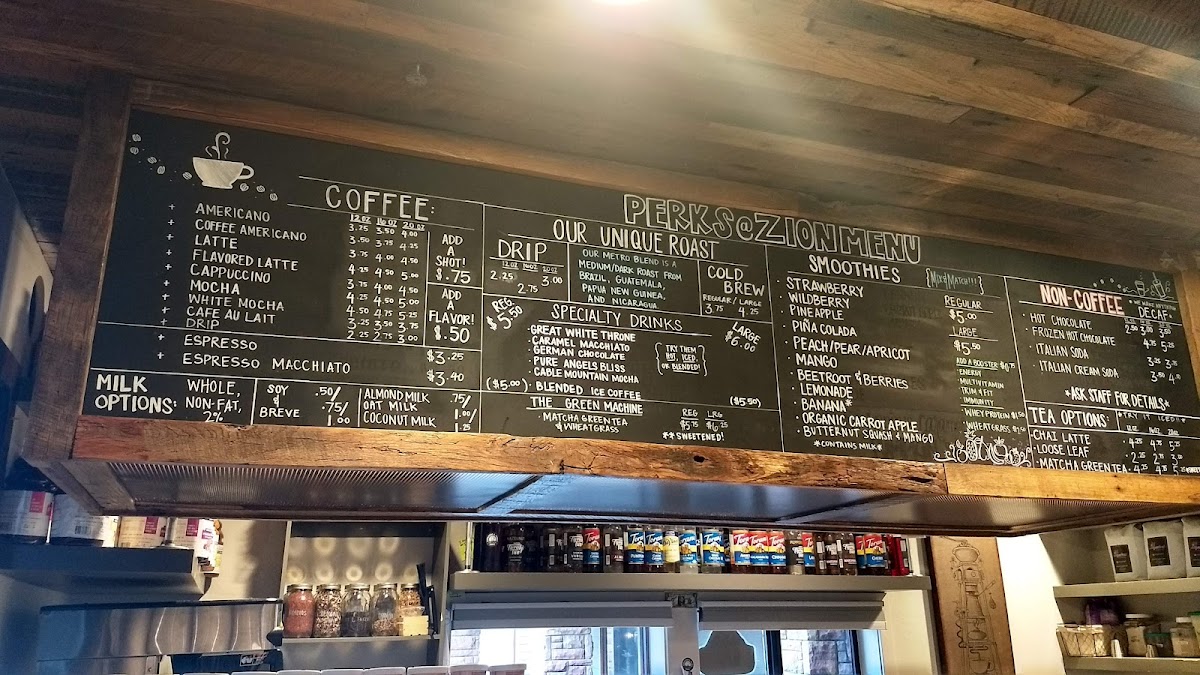 PERKS@ZION MENU
COFFEE:
12 OZ 16 OZ 20 OZ
+ AMERICANO 3.25 3.50 4.00
+ COFFEE AMERICANO 3.50 3.75 4.25
+ LATTE 3.75 4.00 4.50
+ FLAVORED LATTE 4.25 4.50 5.00
+ CAPPUCCINO
+ MOCHA
+ WHITE MOCHA
+ CAFE AU LAIT
+ DRIP 2.25 2.75 3.00
+ ESPRESSO $3.25
+ ESPRESSO MACCHIATO $3.40
ADD
A
SHOT!
$.75
ADD
A
FLAVOR!
$.50
MILK
OPTIONS:
WHOLE,
NON-FAT,
2%
SOY .50/
& .75/
BREVE 1.00
ALMOND MILK .75/
OAT MILK 1.00/
COCONUT MILK 1.25
OUR UNIQUE ROAST
DRIP
12 OZ 16OZ 20OZ
2.25 2.75 3.00
OUR METRO BLEND IS A
MEDIUM/DARK ROAST FROM
BRAZIL, GUATEMALA,
PAPUA NEW GUINEA,
AND NICARAGUA
COLD
BREW
REGULAR / LARGE
3.75 4.25
SPECIALTY DRINKS
REG.
$5.50
LARGE
$6.00
· GREAT WHITE THRONE
· CARAMEL MACCHIATO
· GERMAN CHOCOLATE
· PURE ANGELS BLISS
· CABLE MOUNTAIN MOCHA
TRY THEM
HOT, ICED,
OR BLENDED!
($5.00) · BLENDED ICE COFFEE ($5.50)
THE GREEN MACHINE
· MATCHA GREEN TEA
& WHEATGRASS
REG LRG
$5.75 $6.25
**SWEETENED!
SMOOTHIES
MIX&MATCH!!!
· STRAWBERRY
· WILDBERRY
· PINEAPPLE
· PIÑA COLADA
· PEACH/PEAR/APRICOT
· MANGO
· BEETROOT & BERRIES
· LEMONADE
· BANANA*
· ORGANIC CARROT APPLE
· BUTTERNUT SQUASH & MANGO
*CONTAINS MILK*
REGULAR
$5.00
LARGE
$5.50
ADD A BOOSTER $0.75
· ENERGY
· MULTIVITAMIN
· TRIM & FIT
· IMMUNITY
· WHEY PROTEIN $1.50
WHEATGRASS
NON-COFFEE
DECAF*
· HOT CHOCOLATE
· FROZEN HOT CHOCOLATE
· ITALIAN SODA
· ITALIAN CREAM SODA
*ASK STAFF FOR DETAILS*
TEA OPTIONS:
12oz 16oz 20oz
· CHAI LATTE 4.25 4.75 5.25
· LOOSE LEAF
· MATCHA GREEN TEA
Torani